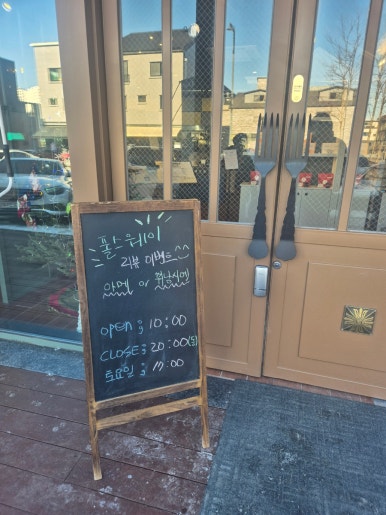 폴스웨이
리뷰 이벤트^^
아메 or 휘낭시에
OPEN ; 10 : 00
CLOSE ; 20 : 00(일)
토요일 ; 17 : 00